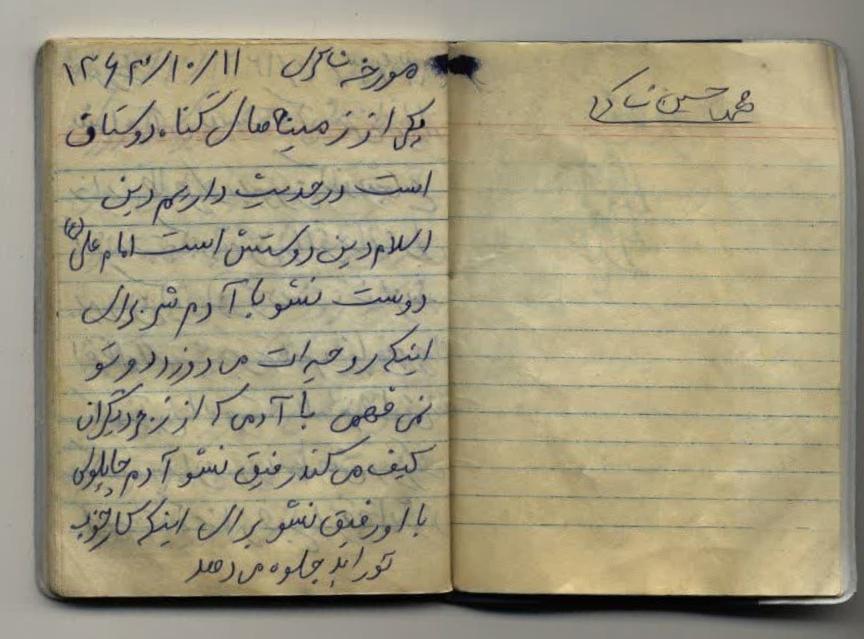 محمد حسین شاکری
مورخه ۱۳۶۳/۱۰/۱۱
یکی از زمینه های گناه دوستان
است در حدیث داریم دین
اسلام دین دوستش است امام علی (ع)
دوست نشو با آدم شر برای
اینکه روحیه ات می دزدد و تو
نمی فهمی با آدمی که از زجر دیگران
کیف می کند رفیق نشو آدم چاپلوسی
با او رفیق نشو برای اینکه کار خوب
تو را بد جلوه می دهد